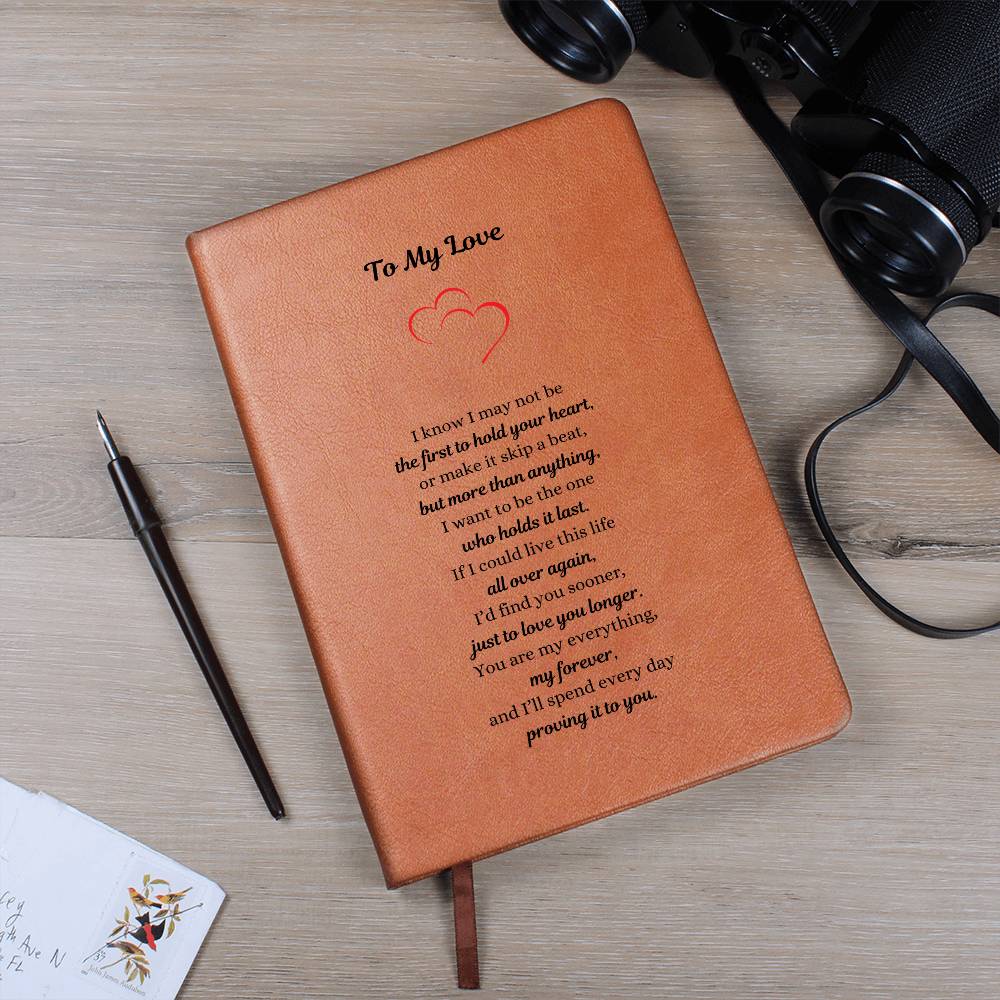 To My Love
I know I may not be
the first to hold your heart,
or make it skip a beat,
but more than anything,
I want to be the one
who holds it last.
If I could live this life
all over again,
I'd find you sooner,
just to love you longer.
You are my everything,
my forever,
and I'll spend every day
proving it to you.
ey
9th Ave N
FL
37
John James Audubon